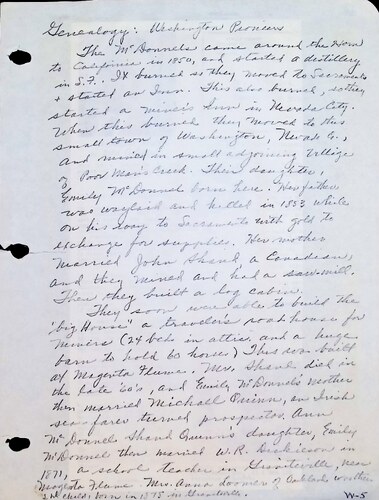 Genealogy: Washington Pioneers
The McDonnels came around the Horn
to California in 1850, and started a distillery
in S.F. It burned so they moved to Sacramento
+ started an Inn. This also burned, so they
started a miners Inn in Nevada City.
When this burned they moved to this
small town of Washington, Nevada Co.,
and mined in small adjoining village
of Poor Man's Creek. Their daughter,
Emily McDonnel born here. Her father
was waylaid and killed in 1853 while
on his way to Sacramento with gold to
exchange for supplies. Her mother
married John Shand, a Canadian,
and they mined and had a saw-mill.
Then they built a log cabin.
They soon were able to build the
"big House" a traveler's road house for
miners (24 beds in attic, and a huge
barn to hold 60 horses) This was built
at Magenta Flume. Mrs. Shand died in
the late '60's, and Emily McDonnel's mother
then married Michall Quinn, an Irish
sea-farer turned prospector. Ann
McDonnel Shand Quinn's daughter, Emily
McDonnel then married W.R. Dickilson in
1871, a school teacher in Graniteville, near
Magenta Flume. Mrs. Anna of Oakland
2nd child, born in 1875 in Graniteville.
W-5